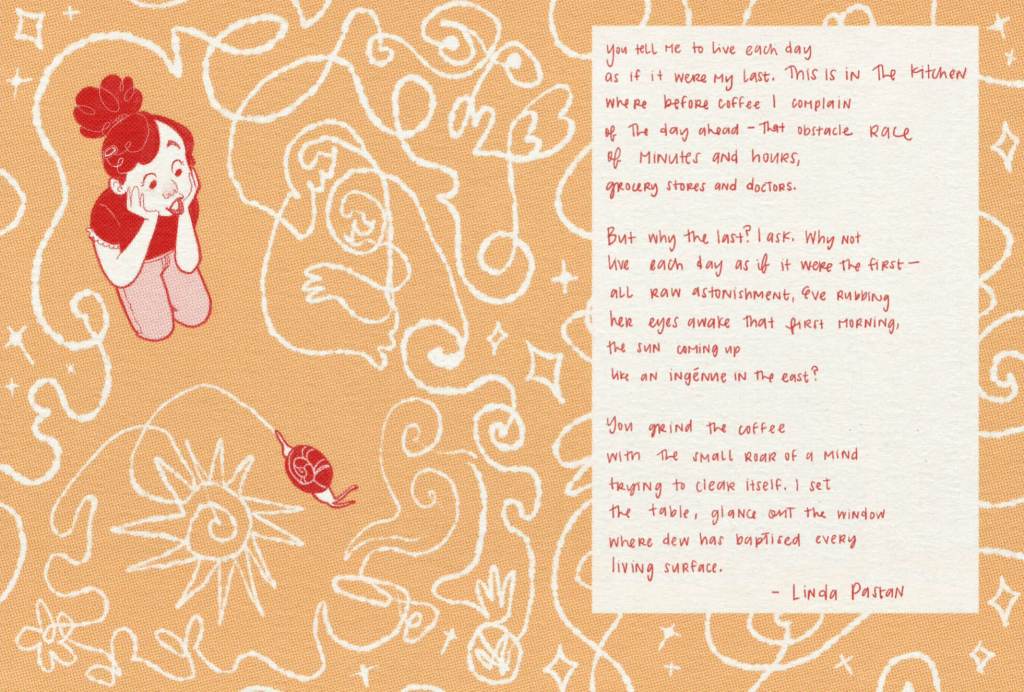 you tell me to live each day
as if it were my last. This is in the kitchen
where before coffee I complain
of the day ahead – that obstacle race
of minutes and hours,
grocery stores and doctors.
But why the last? I ask. Why not
live each day as if it were the first –
all raw astonishment, Eve rubbing
her eyes awake that first morning,
the sun coming up
like an ingénue in the east?
You grind the coffee
with the small roar of a mind
trying to clear itself. I set
the table, glance out the window
where dew has baptised every
living surface.
- Linda Pastan